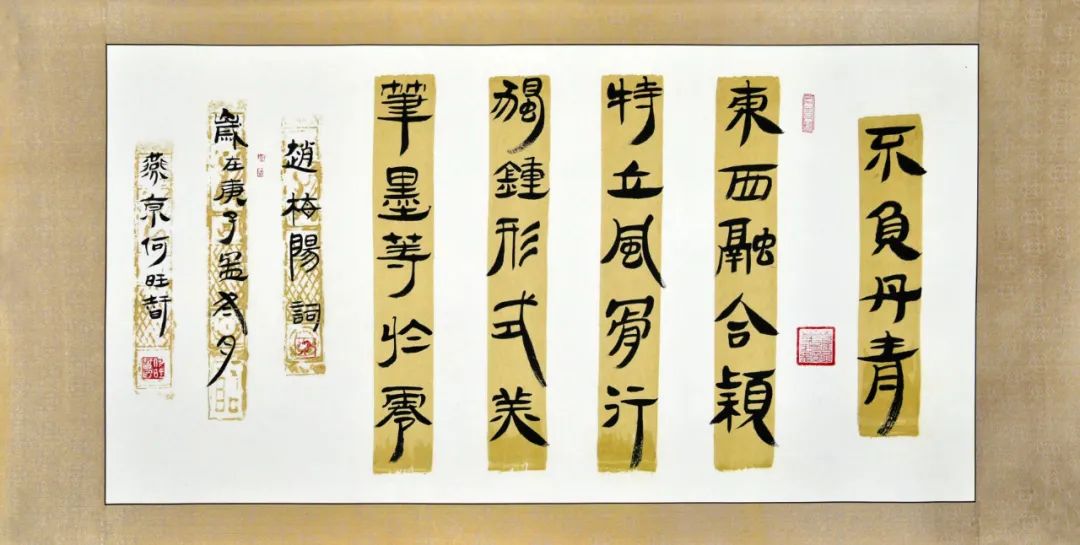 不負丹青
東西融合穎
特立風骨行
獨鍾形式美
筆墨等於零
趙梅陽詞
歲在庚子孟冬月
燕京何旺